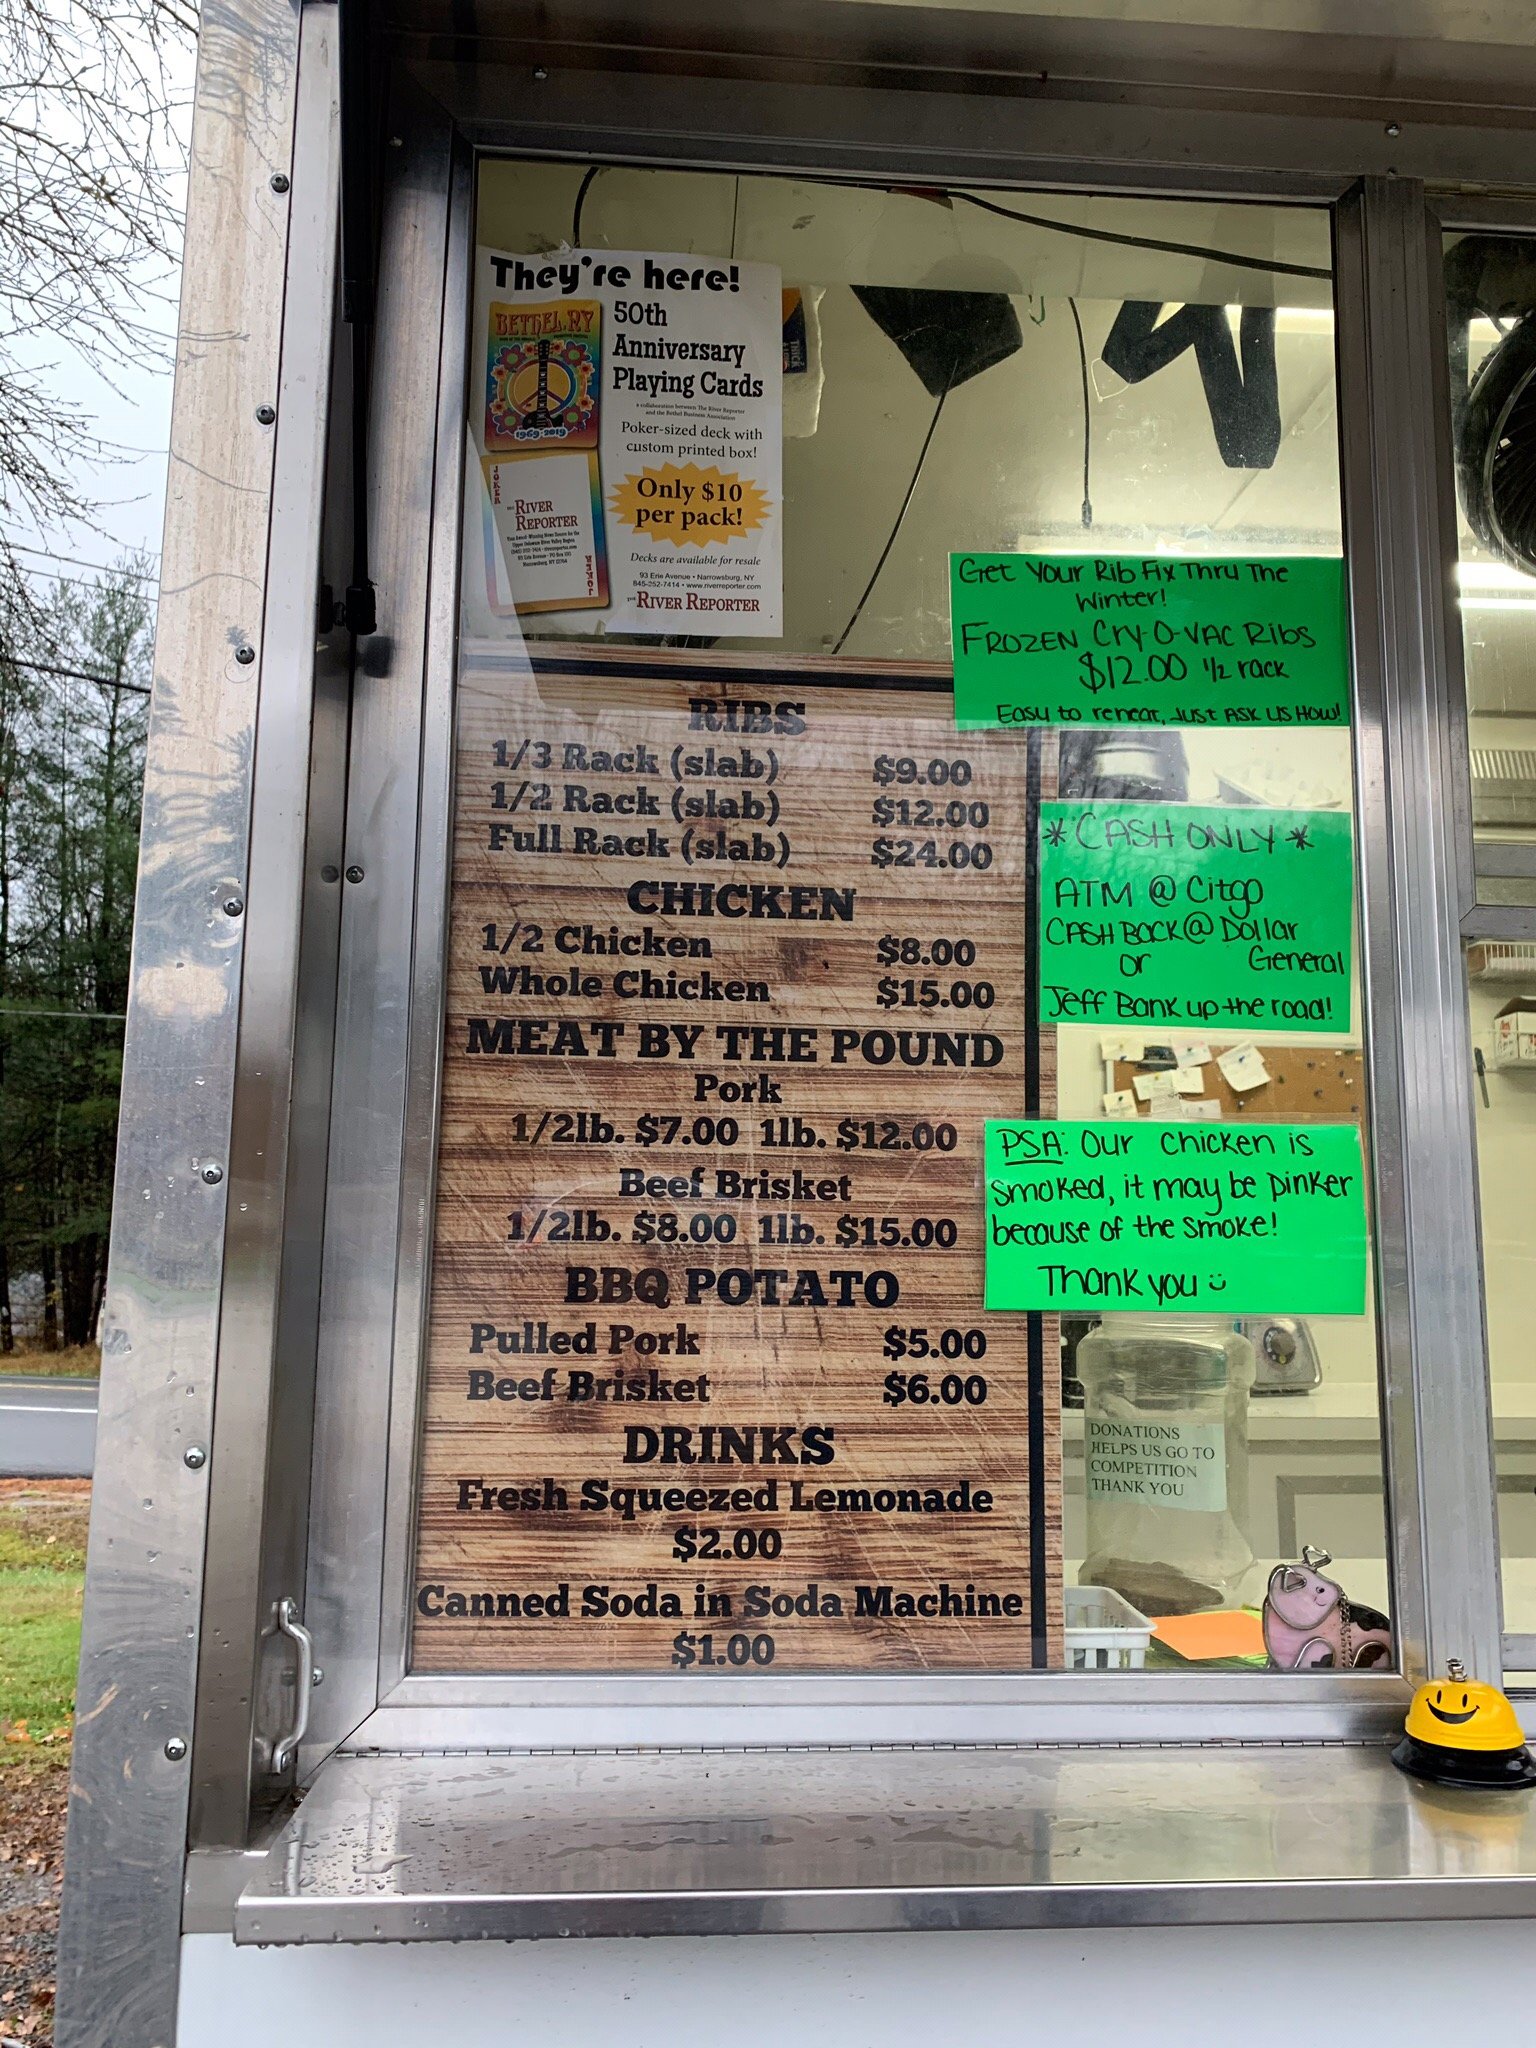 They're here!
BETHEL, NY
1969-2019
50th
Anniversary
Playing Cards
a collaboration between The River Reporter
and the Bethel Business Association
Poker-sized deck with
custom printed box!
Only $10
per pack!
Decks are available for resale
93 Erie Avenue • Narrowsburg, NY
845-252-7414 • www.riverreporter.com
THE RIVER REPORTER
JOKER
THE RIVER
REPORTER
Narrowsburg, NY 12764
JOKER
Get Your Rib Fix Thru The
Winter!
FROZEN Cry-O-VAC Ribs
$12.00 1/2 rack
Easy to reheat, Just ASK US HOW!
RIBS
1/3 Rack (slab) $9.00
1/2 Rack (slab) $12.00
Full Rack (slab) $24.00
CHICKEN
1/2 Chicken $8.00
Whole Chicken $15.00
MEAT BY THE POUND
Pork
1/2lb. $7.00 1lb. $12.00
Beef Brisket
1/2lb. $8.00 1lb. $15.00
BBQ POTATO
Pulled Pork $5.00
Beef Brisket $6.00
DRINKS
Fresh Squeezed Lemonade
$2.00
Canned Soda in Soda Machine
$1.00
* CASH ONLY *
ATM @ Citgo
CASH BACK @ Dollar
or General
Jeff Bank up the road!
PSA: Our chicken is
smoked, it may be pinker
because of the smoke!
Thank you
DONATIONS
HELPS US GO TO
COMPETITION
THANK YOU